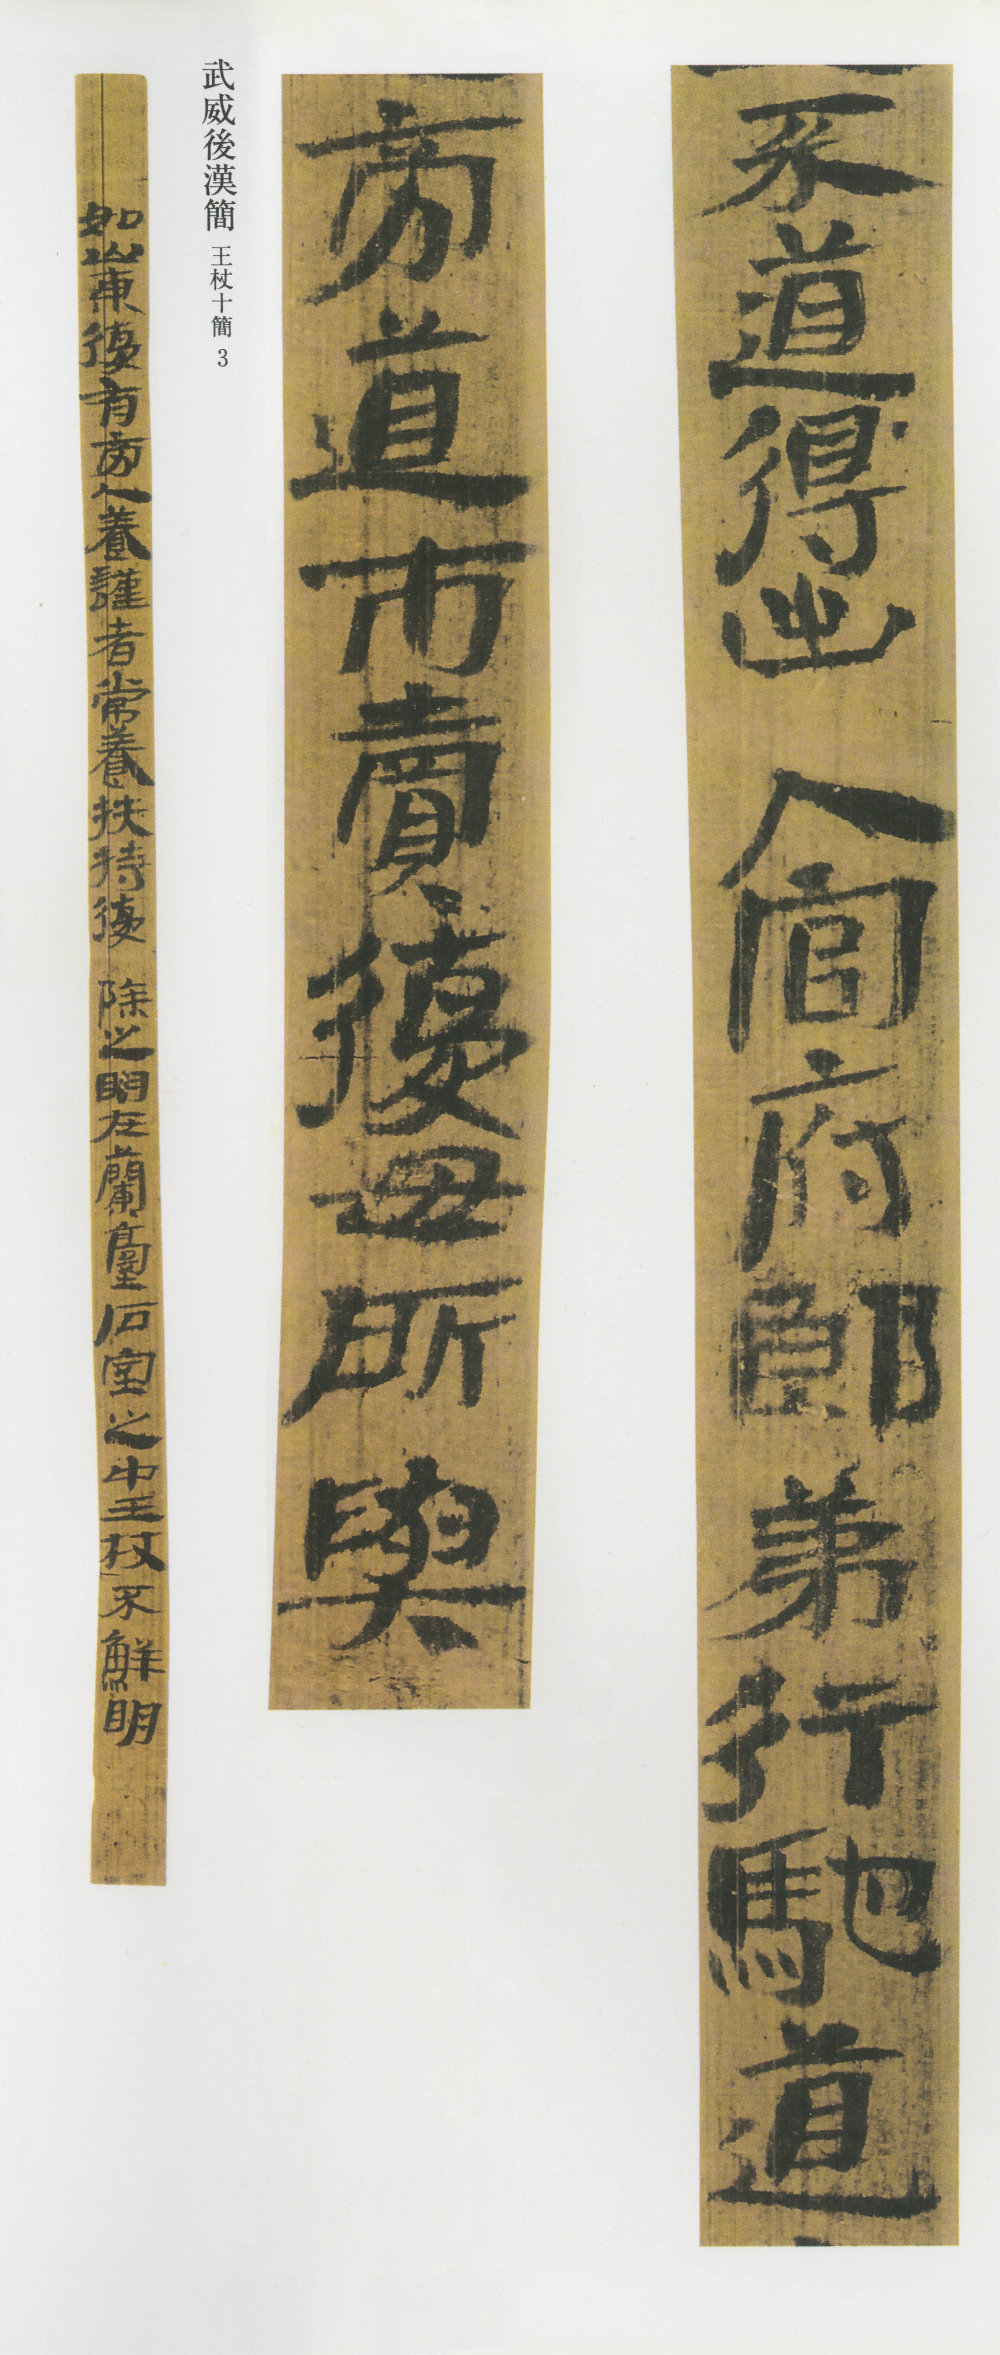 不道得出 入官府郎弟行馳道
旁道市賣復毋所與
武威後漢簡 王杖十簡 3
如山東復有旁人養謹者常養扶持復 除之明在蘭臺石室之中王杖不鮮明